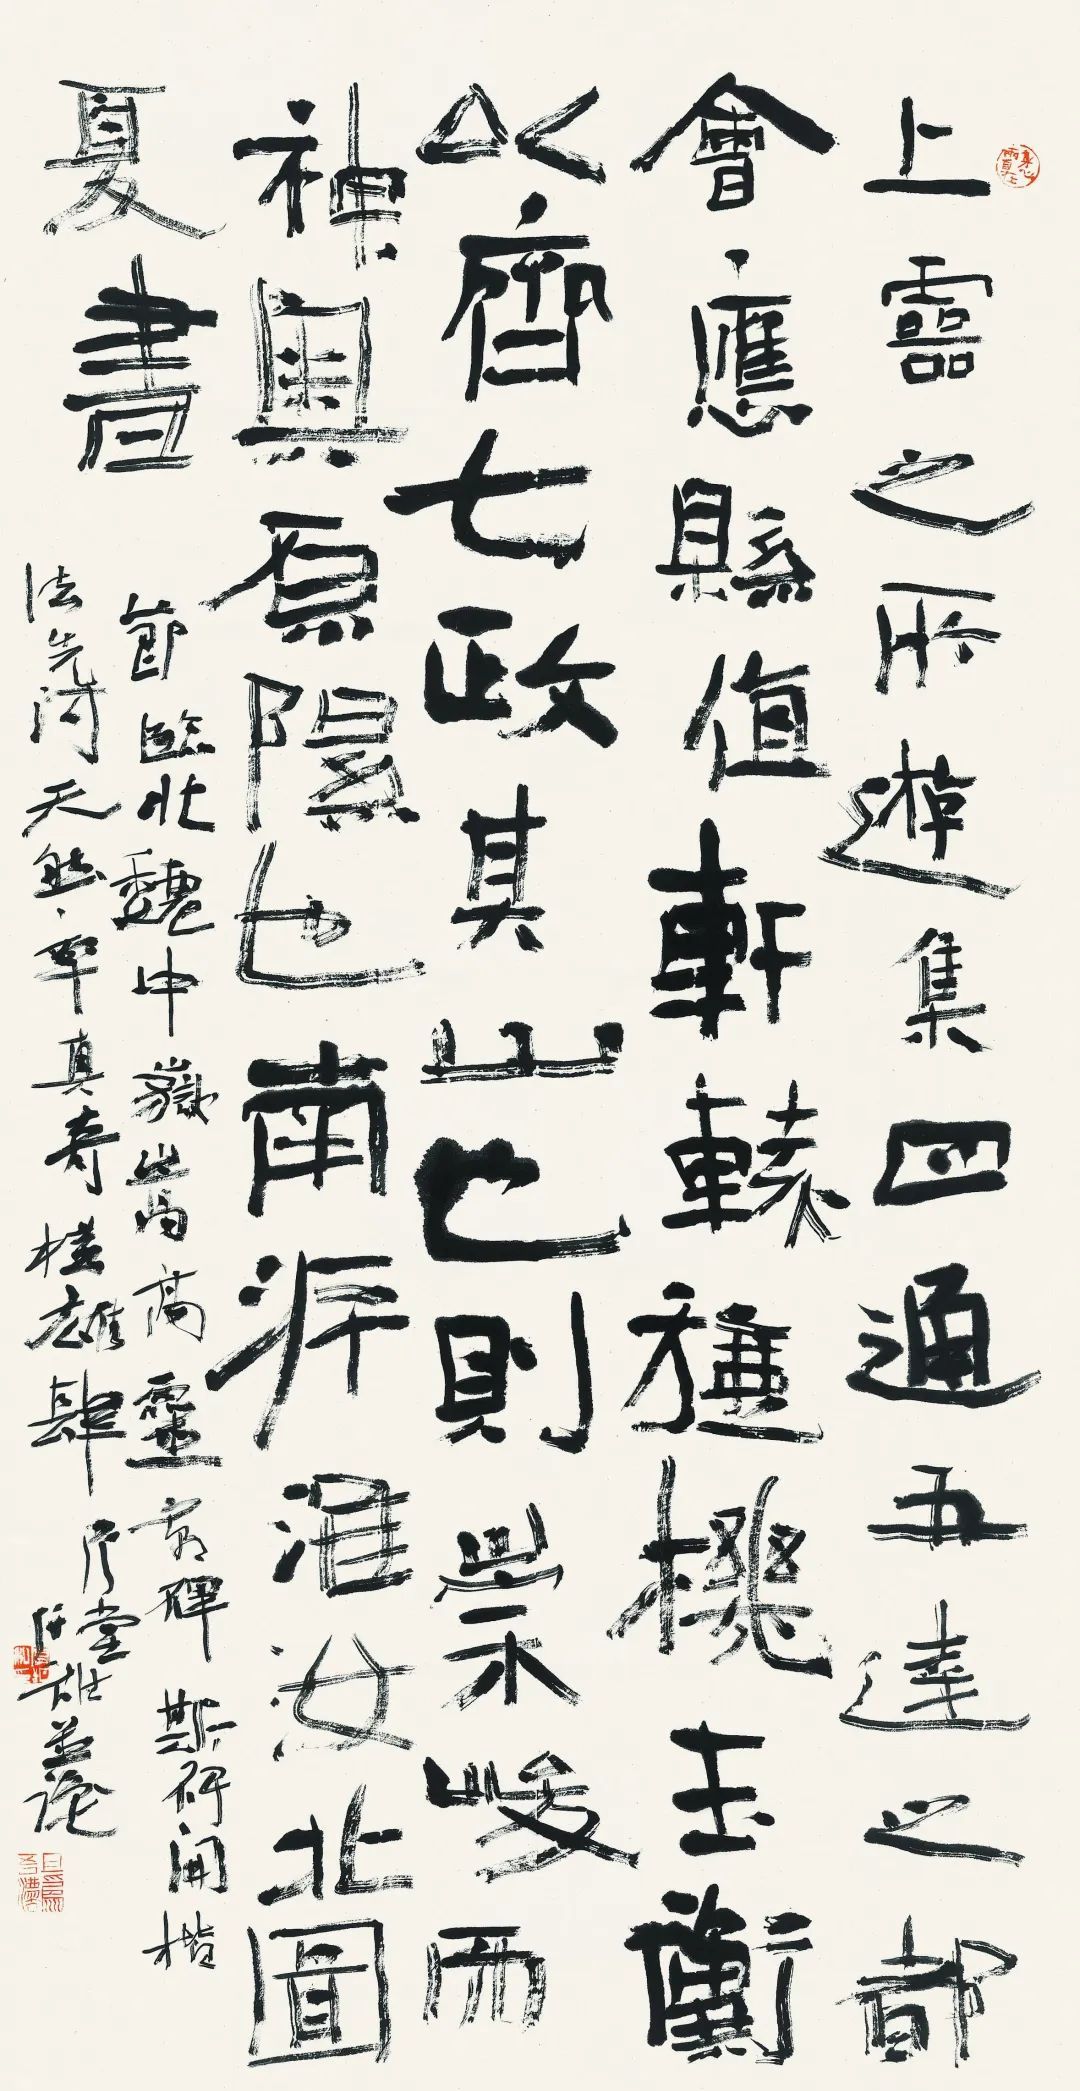 上靈之所遊集四通五達之都
會應縣值軒轅旋機玉衡
以齊七政其山也則崇峻而
神輿原隰也南湃淮汝北圖
夏書
節臨北魏中嶽嵩高靈廟碑 斯碑開楷
法先河 天然率真 奇樸雄肆